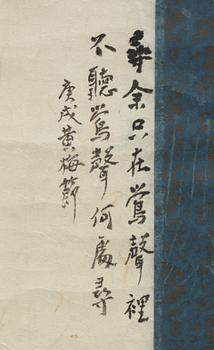 尋余只在鶯聲裡
不聽鶯聲何處尋
庚戌黄梅節